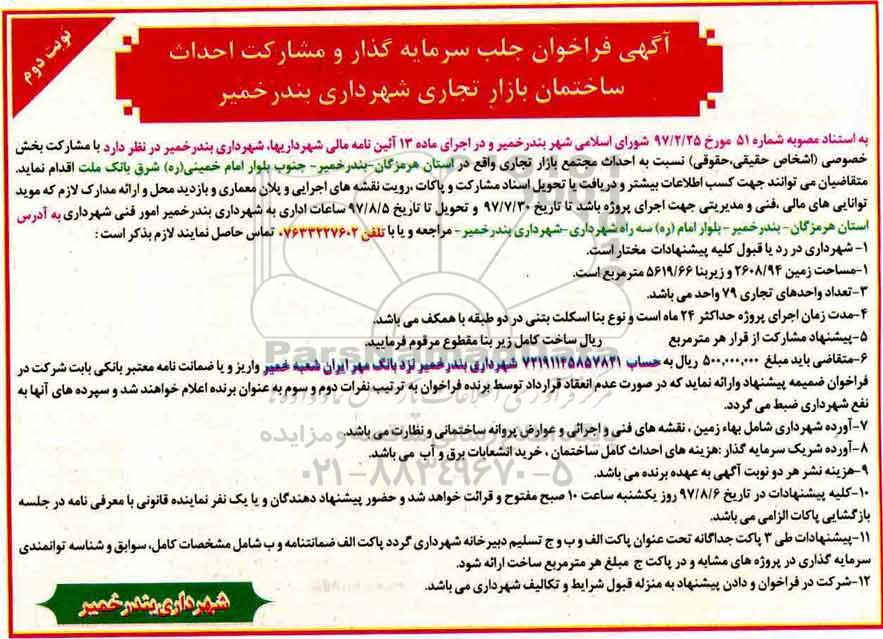 نوبت دوم
آگهی فراخوان جلب سرمایه گذار و مشارکت احداث
ساختمان بازار تجاری شهرداری بندرخمیر
به استناد مصوبه شماره ۵۱ مورخ ۹۷/۲/۲۵ شورای اسلامی شهر بندرخمیر و در اجرای ماده ۱۳ آئین نامه مالی شهرداریها، شهرداری بندرخمیر در نظر دارد با مشارکت بخش
خصوصی (اشخاص حقیقی،حقوقی) نسبت به احداث مجتمع بازار تجاری واقع در استان هرمزگان-بندرخمیر- جنوب بلوار امام خمینی(ره) شرق بانک ملت اقدام نماید.
متقاضیان می توانند جهت کسب اطلاعات بیشتر و دریافت یا تحویل اسناد مشارکت و پاکات ،رویت نقشه های اجرایی و پلان معماری و بازدید محل و ارائه مدارک لازم که موید
توانایی های مالی ،فنی و مدیریتی جهت اجرای پروژه باشد تا تاریخ ۹۷/۷/۳۰ و تحویل تا تاریخ ۹۷/۸/۵ ساعات اداری به شهرداری بندرخمیر امور فنی شهرداری به آدرس
استان هرمزگان- بندرخمیر- بلوار امام (ره) سه راه شهرداری-شهرداری بندرخمیر- مراجعه و یا با تلفن ۰۷۶۳۳۲۲۷۶۰۲ تماس حاصل نمایند لازم بذکر است :
۱- شهرداری در رد یا قبول کلیه پیشنهادات مختار است.
۱-مساحت زمین ۲۶۰۸/۹۴ و زیربنا ۵۶۱۹/۶۶ مترمربع است.
۳-تعداد واحدهای تجاری ۷۹ واحد می باشد.
۴-مدت زمان اجرای پروژه حداکثر ۲۴ ماه است و نوع بنا اسکلت بتنی در دو طبقه با همکف می باشد.
۵-پیشنهاد مشارکت از قرار هر مترمربع ریال ساخت کامل زیر بنا مقطوع مرقوم فرمایید.
۶-متقاضی باید مبلغ ۵۰۰,۰۰۰,۰۰۰ ریال به حساب ۷۲۱۹۱۱۲۵۸۵۷۸۲۱ شهرداری بندرخمیر نزد بانک مهر ایران شعبه خمیر واریز و یا ضمانت نامه معتبر بانکی بابت شرکت در
فراخوان ضمیمه پیشنهاد وارائه نماید که در صورت عدم انعقاد قرارداد توسط برنده فراخوان به ترتیب نفرات دوم و سوم به عنوان برنده اعلام خواهند شد و سپرده های آنها به
نفع شهرداری ضبط می گردد.
۷-آورده شهرداری شامل بهاء زمین ، نقشه های فنی و اجرائی و عوارض پروانه ساختمانی و نظارت می باشد.
۸-آورده شریک سرمایه گذار :هزینه های احداث کامل ساختمان ، خرید انشعابات برق و آب می باشد.
۹-هزینه نشر هر دو نوبت آگهی به عهده برنده می باشد.
۱۰-کلیه پیشنهادات در تاریخ ۹۷/۸/۶ روز یکشنبه ساعت ۱۰ صبح مفتوح و قرائت خواهد شد و حضور پیشنهاد دهندگان و یا یک نفر نماینده قانونی با معرفی نامه در جلسه
بازگشایی پاکات الزامی می باشد.
۱۱-پیشنهادات طی ۳ پاکت جداگانه تحت عنوان پاکت الف و ب و ج تسلیم دبیرخانه شهرداری گردد پاکت الف ضمانتنامه و ب شامل مشخصات کامل، سوابق و شناسه توانمندی
سرمایه گذاری در پروژه های مشابه و در پاکت ج مبلغ هر مترمربع ساخت ارائه شود.
۱۲-شرکت در فراخوان و دادن پیشنهاد به منزله قبول شرایط و تکالیف شهرداری می باشد.
شهرداری بندرخمیر
ParsNamadData
۰۲۱-۸۸۳۴۹۶۷۰-۵